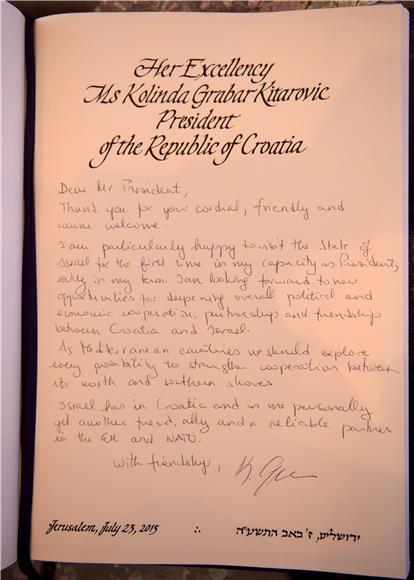 Her Excellency
Ms Kolinda Grabar Kitarovic
President
of the Republic of Croatia
Dear Mr President,
Thank you for your cordial, friendly and
warm welcome.
I am particularly happy to visit the State of
Israel for the first time in my capacity as President,
early in my term. I am looking forward to new
opportunities for deepening overall political and
economic cooperation, partnership and friendship
between Croatia and Israel.
As Mediterranean countries we should explore
every possibility to strengthen cooperation between
its north and southern shores
Israel has in Croatia and in me personally
yet another friend, ally and a reliable partner
in the EU and NATO.
With friendship,
Jerusalem, July 23, 2015 ירושלים, ז' באב התשע"ה